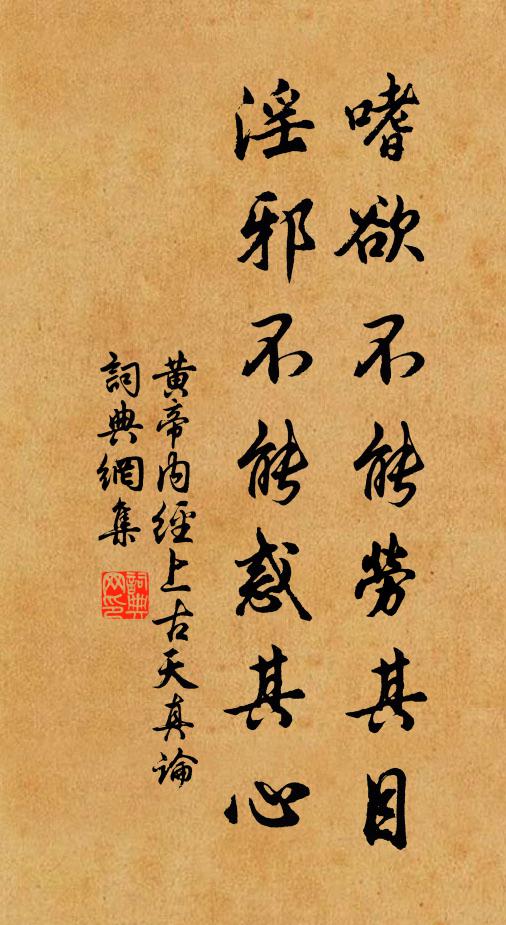 嗜欲不能勞其目
淫邪不能惑其心
黃帝內經上古天真論
詞典網集
詞典网印